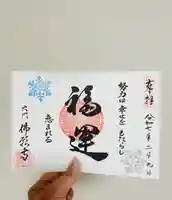 奉拝
令和七年二月九日
努力は幸せを
もたらし
福運
恵まれる
大門
佛願寺